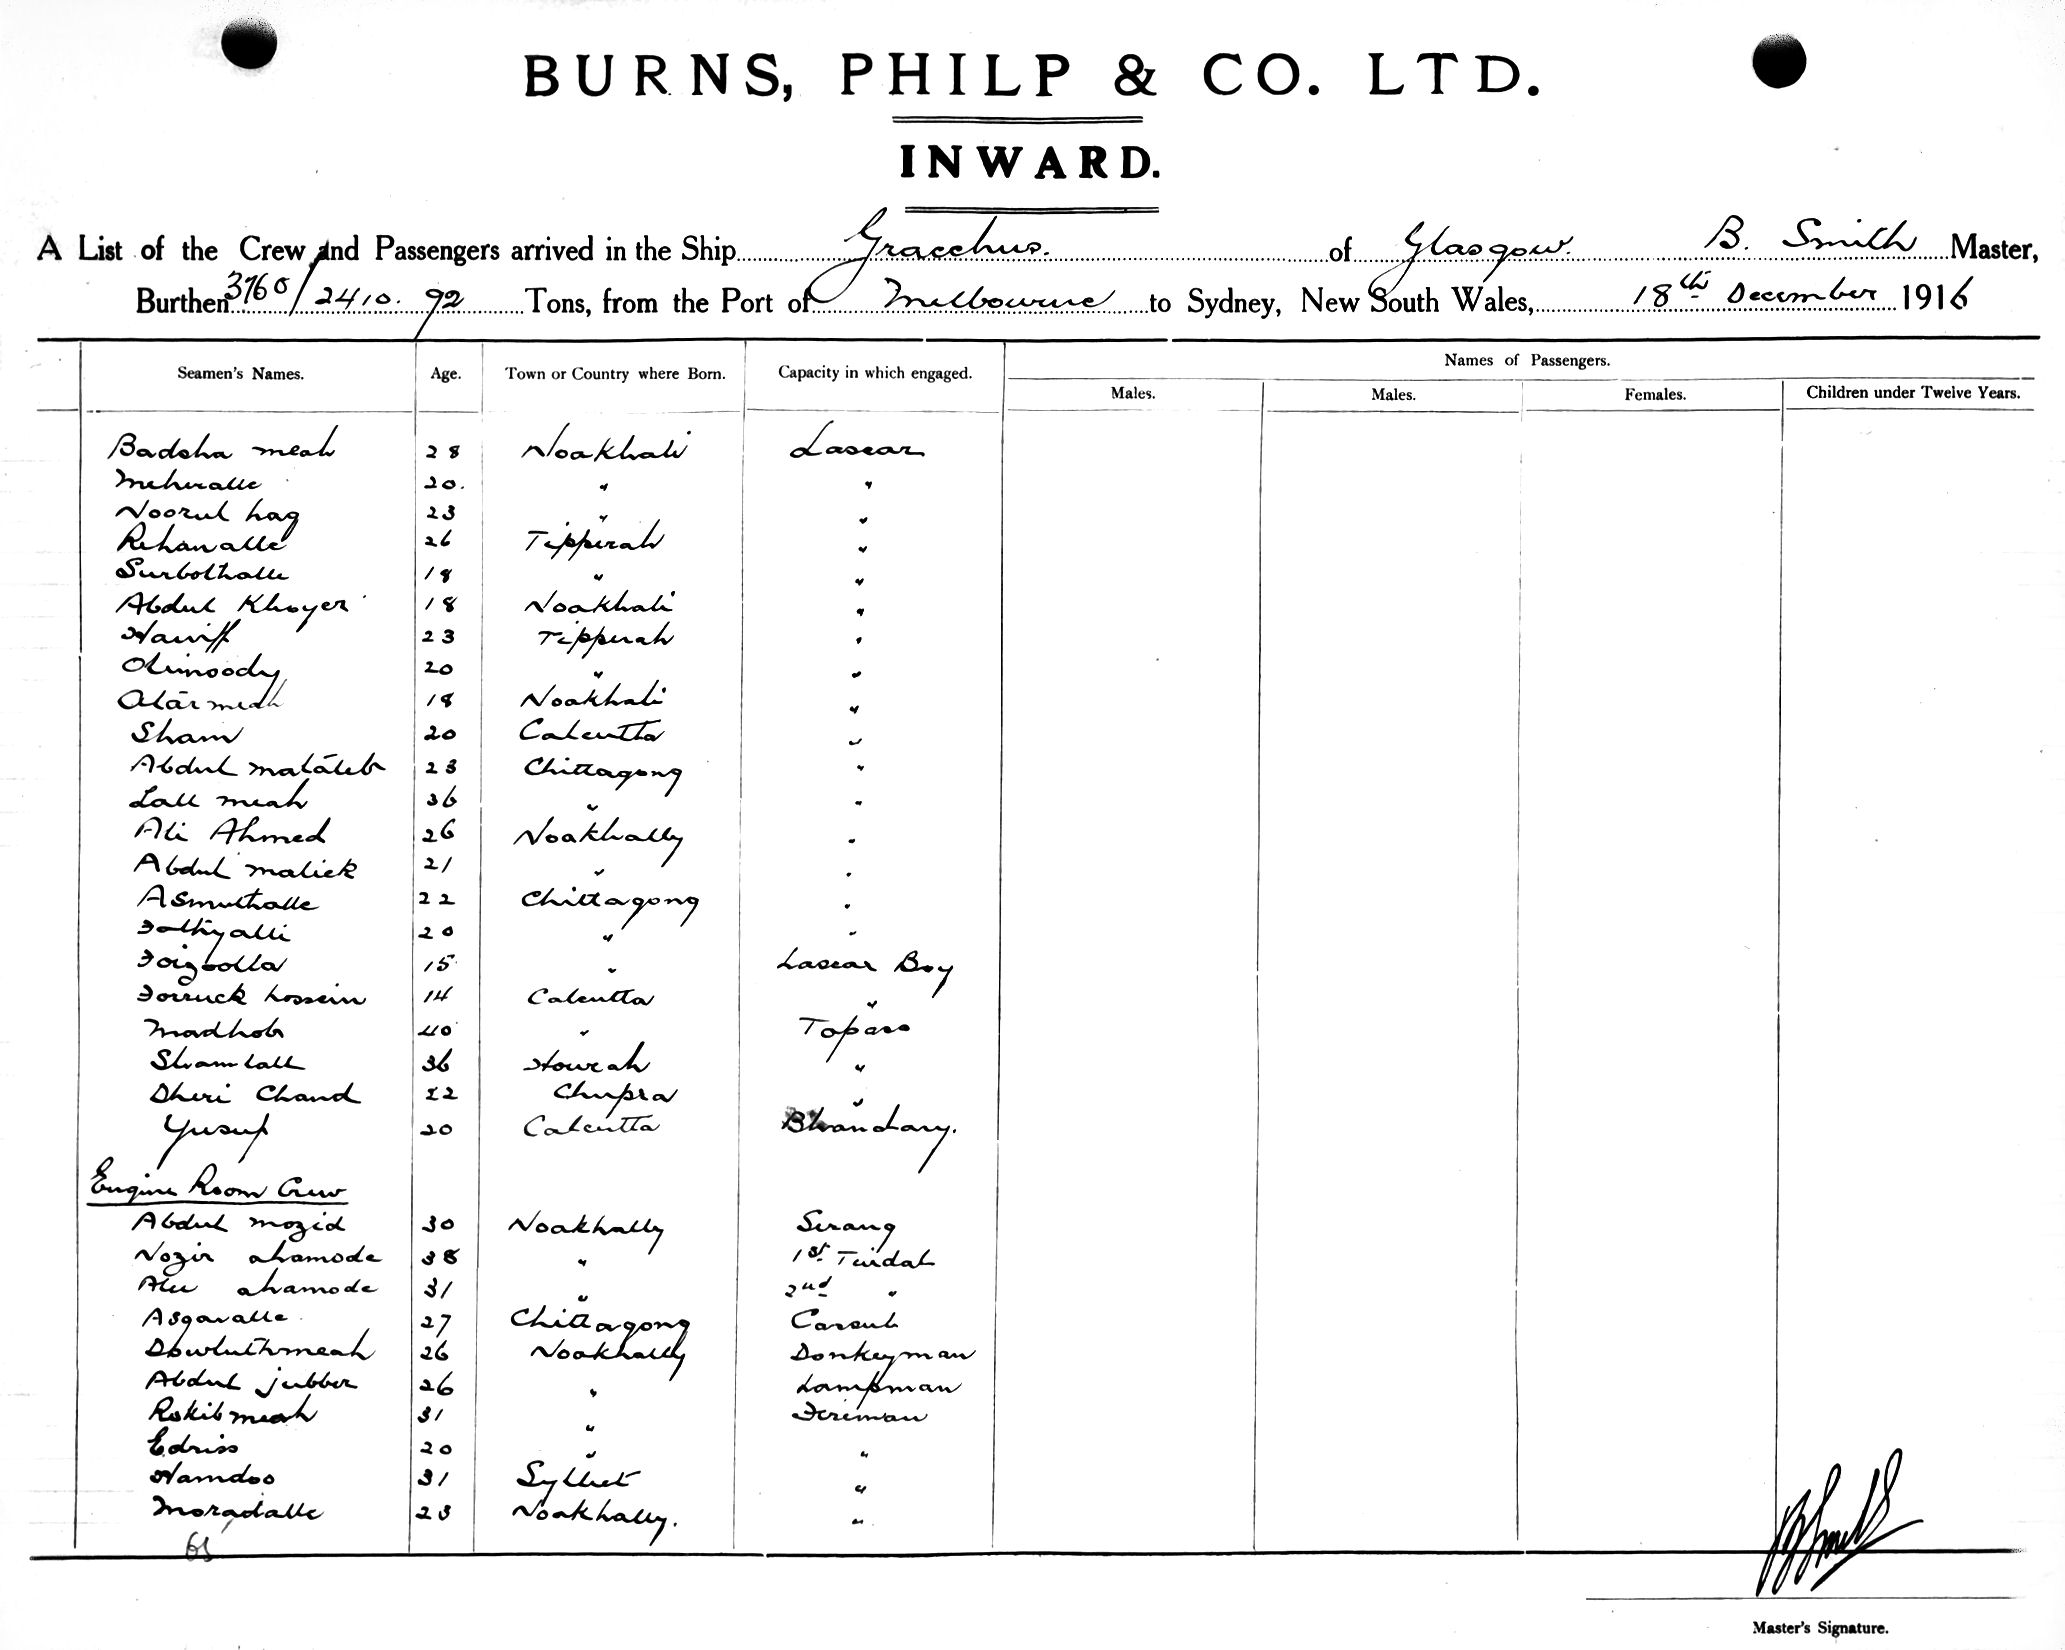 BURNS, PHILP & CO. LTD.
INWARD.
A List of the Crew and Passengers arrived in the Ship Gracchus. of Glasgow. B. Smith Master,
Burthen 3760/2410.92 Tons, from the Port of Melbourne to Sydney, New South Wales, 18th December 1916
Names of Passengers.
Seamen's Names. Age. Town or Country where Born. Capacity in which engaged. Males. Males. Females. Children under Twelve Years.
Badsha meah 28 Noakhali Lascar
Meheralle 20. " "
Noorul haq 23 " "
Rehanalle 26 Tipperah "
Surbothalle 18 " "
Abdul Khoyer 18 Noakhali "
Haniff 23 Tipperah "
Olimoody 20 " "
Atarmeah 18 Noakhali "
Sham 20 Calcutta "
Abdul matāleb 23 Chittagong "
Lall meah 36 " "
Ali Ahmed 26 Noakhally "
Abdul malick 21 " "
Asmuthalle 22 Chittagong "
Fothyalli 20 " "
Foizoolla 15 " Lascar Boy
Forruck hossein 14 Calcutta "
Madhob 40 " Topass
Shamlall 36 Howrah "
Dheri Chand 22 Chupra "
Yusuf 20 Calcutta Bhandary.
Engine Room Crew
Abdul mozid 30 Noakhally Serang
Nozir ahamode 38 " 1st Tindal
Alli ahamode 31 " 2nd "
Asgaralle 27 Chittagong Cassub
Dowluthmeah 26 Noakhally Donkeyman
Abdul jubber 26 " Lampman
Rokibmeah 31 " Fireman
Edriss 20 " "
Hamdoo 31 Sylhet "
Moradalle 23 Noakhally. "
B Smith
Master's Signature.